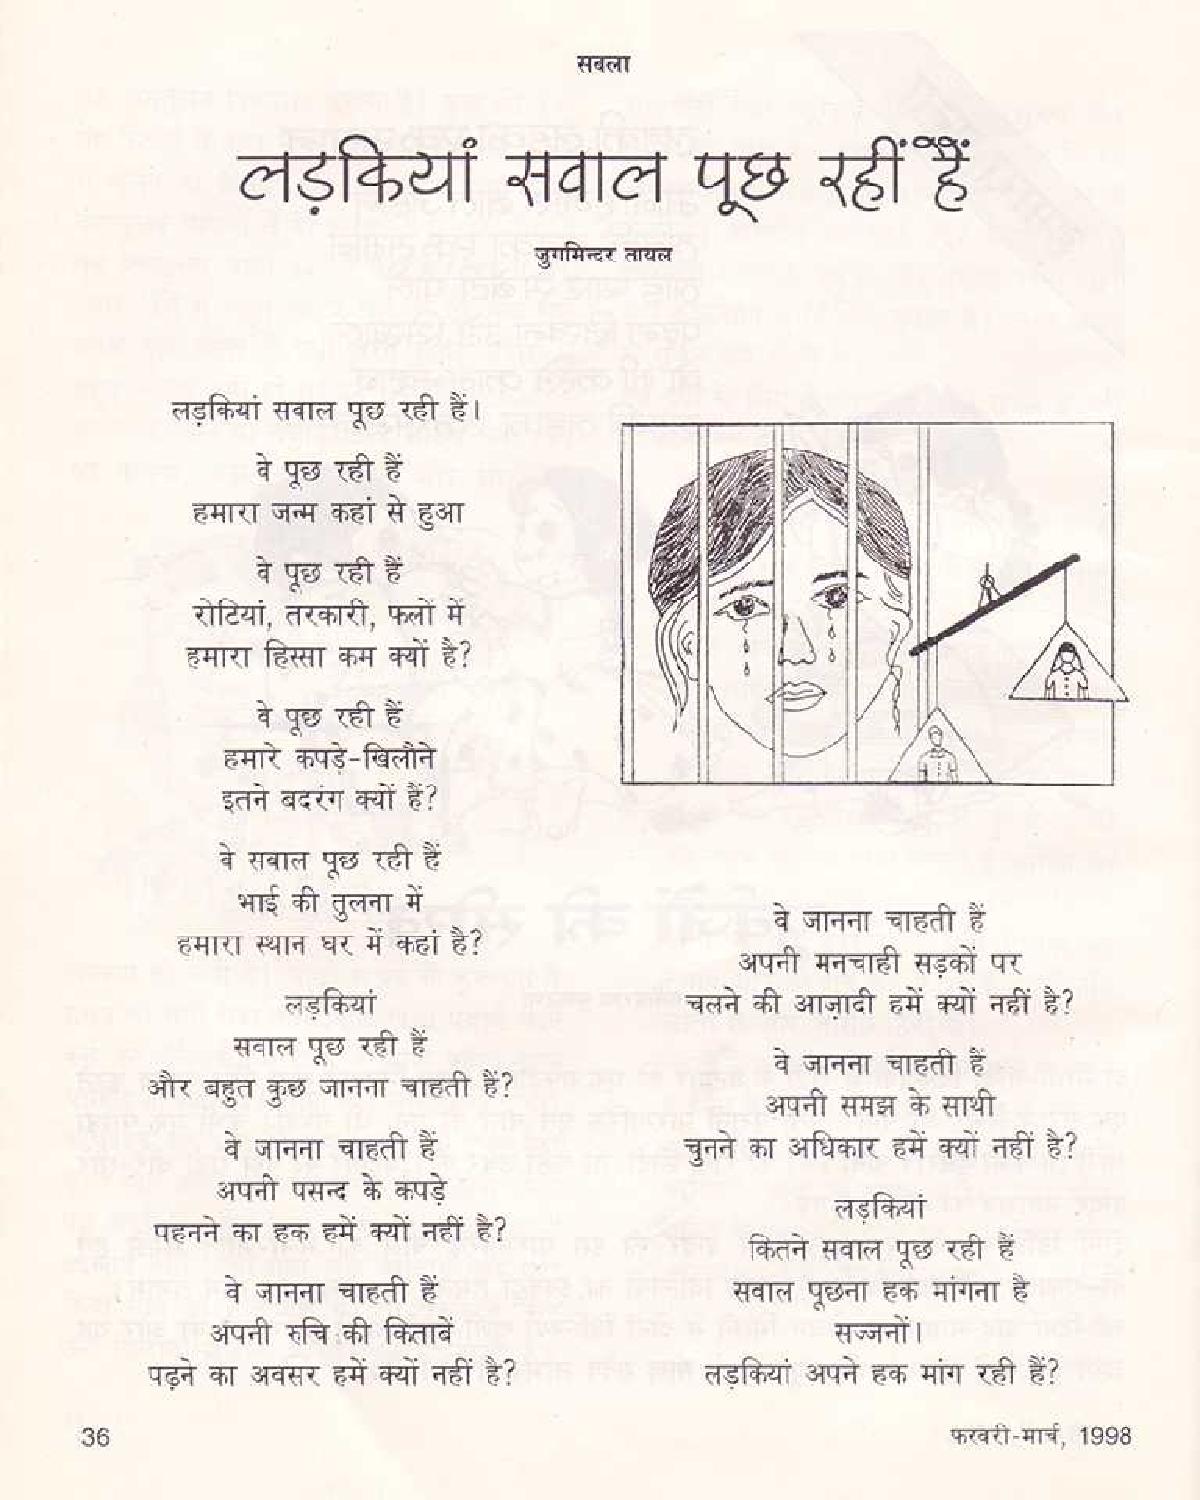 सबला
लड़कियां सवाल पूछ रहीं हैं
जुगमिन्दर तायल
लड़कियां सवाल पूछ रही हैं।
वे पूछ रही हैं
हमारा जन्म कहां से हुआ
वे पूछ रही हैं
रोटियां, तरकारी, फलों में
हमारा हिस्सा कम क्यों है?
वे पूछ रही हैं
हमारे कपड़े-खिलौने
इतने बदरंग क्यों हैं?
वे सवाल पूछ रही हैं
भाई की तुलना में
हमारा स्थान घर में कहां है?
लड़कियां
सवाल पूछ रही हैं
और बहुत कुछ जानना चाहती हैं?
वे जानना चाहती हैं
अपनी पसन्द के कपड़े
पहनने का हक हमें क्यों नहीं है?
वे जानना चाहती हैं
अपनी रुचि की किताबें
पढ़ने का अवसर हमें क्यों नहीं है?
वे जानना चाहती हैं
अपनी मनचाही सड़कों पर
चलने की आज़ादी हमें क्यों नहीं है?
वे जानना चाहती हैं
अपनी समझ के साथी
चुनने का अधिकार हमें क्यों नहीं है?
लड़कियां
कितने सवाल पूछ रही हैं
सवाल पूछना हक मांगना है
सज्जनों।
लड़कियां अपने हक मांग रही हैं?
36
फरवरी-मार्च, 1998